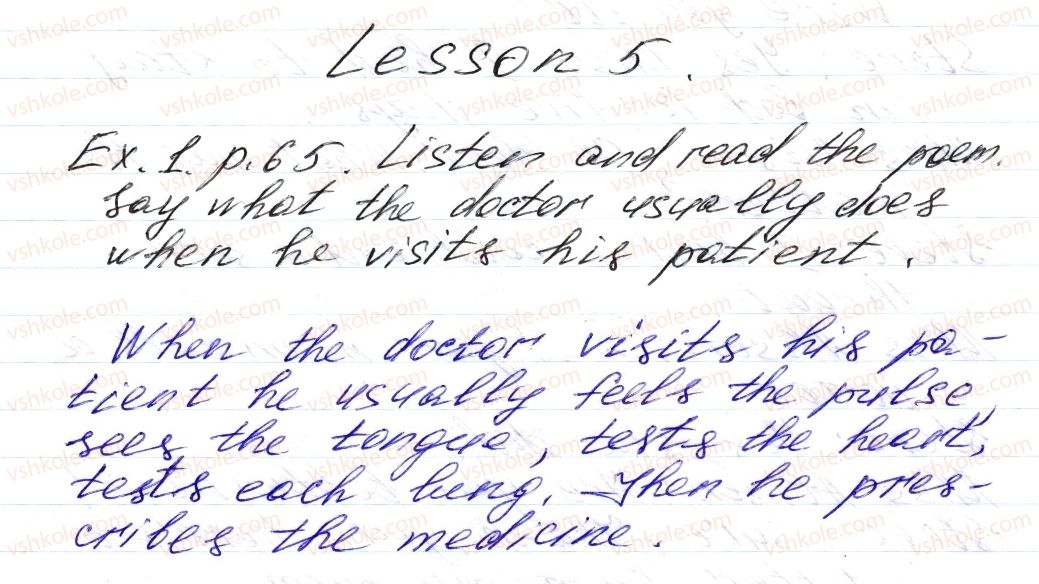 Lesson 5.
Ex. 1. p. 65. Listen and read the poem.
Say what the doctor usually does
when he visits his patient.
When the doctor visits his pa-
tient he usually feels the pulse,
sees the tongue, tests the heart,
tests each lung. Then he pres-
cribes the medicine.